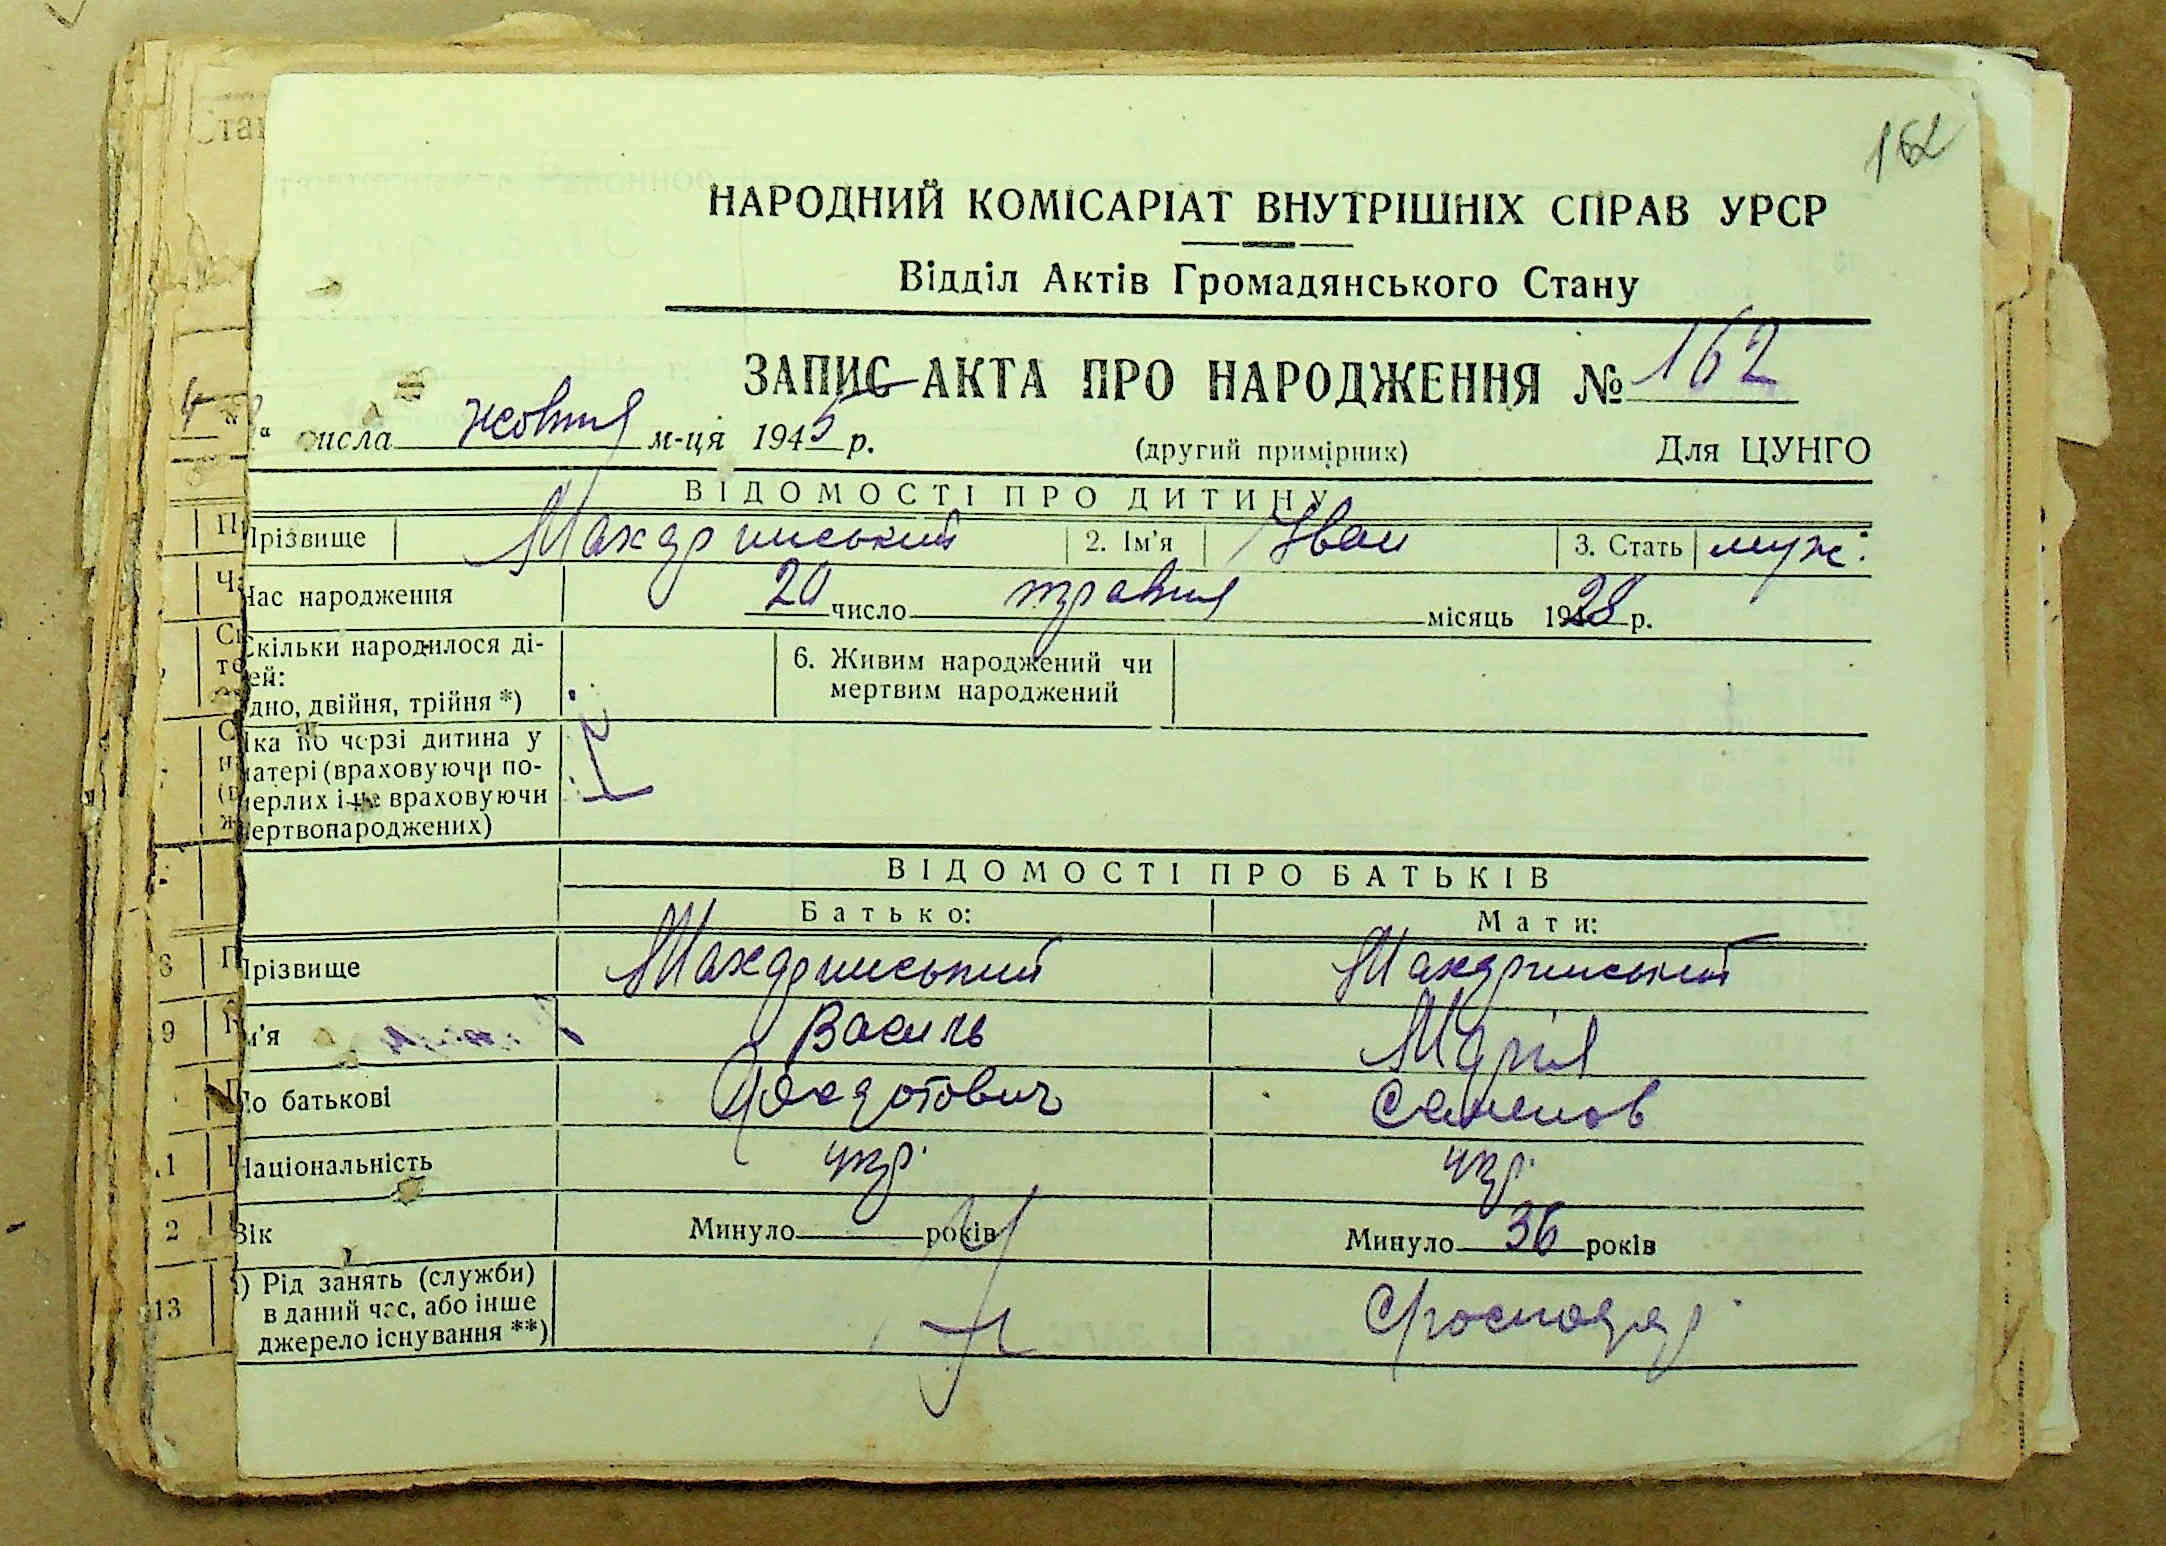 162
НАРОДНИЙ КОМІСАРІАТ ВНУТРІШНІХ СПРАВ УРСР
Відділ Актів Громадянського Стану
ЗАПИС АКТА ПРО НАРОДЖЕННЯ № 162
числа жовтня м-ця 1945 р. (другий примірник) Для ЦУНГО
ВІДОМОСТІ ПРО ДИТИНУ
Прізвище 2. Ім'я Іван 3. Стать муж.
Час народження 20 число травня місяць 1928 р.
Скільки народилося ді-
тей:
одно, двійня, трійня *)
6. Живим народжений чи
мертвим народжений
Яка по черзі дитина у
матері (враховуючи по-
мерлих і не враховуючи
мертвонароджених)
ВІДОМОСТІ ПРО БАТЬКІВ
Батько: Мати:
Прізвище
Ім'я Василь Марія
По батькові Семенов
Національність укр. укр.
Вік Минуло років Минуло 36 років
13 Рід занять (служби)
в даний час, або інше
джерело існування **)